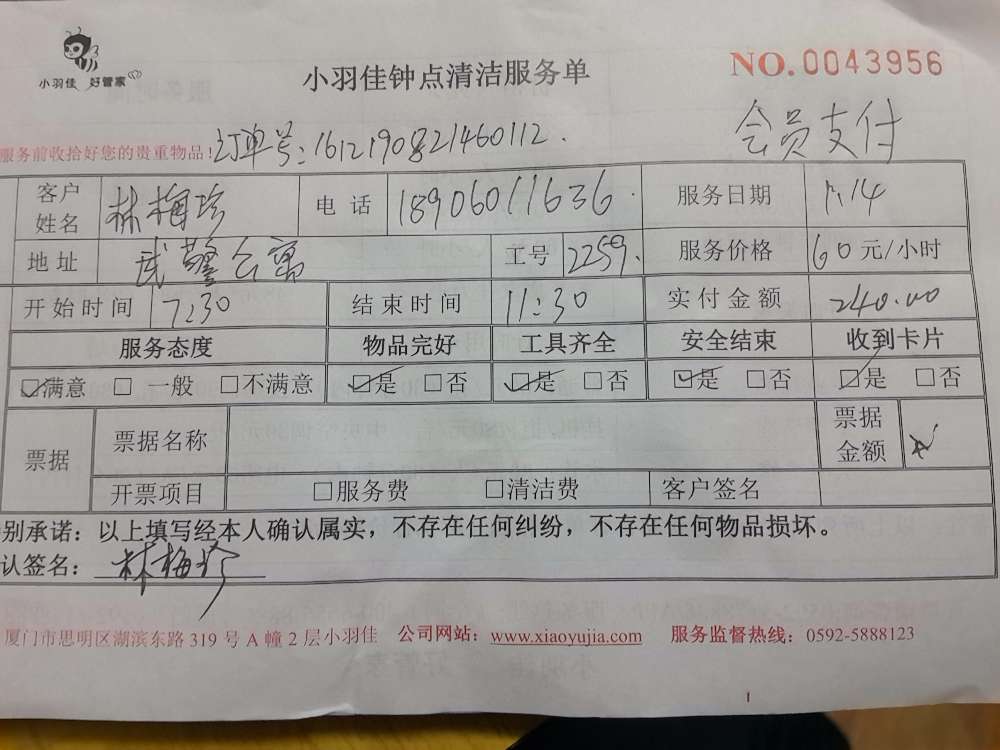 小羽佳 好管家
小羽佳钟点清洁服务单
NO.0043956
会员支付
服务前收拾好您的贵重物品!
订单号:1612190821460112.
客户姓名 林梅珍 电话 18906011636. 服务日期
地址 武警公寓 工号 2259. 服务价格 60元/小时
开始时间 7:30 结束时间 11:30 实付金额 240.00
服务态度 物品完好 工具齐全 安全结束 收到卡片
☑满意 □一般 □不满意 ☑是 □否 ☑是 □否 ☑是 □否 ☑是 □否
票据 票据名称 票据金额
开票项目 □服务费 □清洁费 客户签名
别承诺：以上填写经本人确认属实，不存在任何纠纷，不存在任何物品损坏。
认签名：林梅珍
厦门市思明区湖滨东路 319 号 A 幢 2 层小羽佳 公司网站：www.xiaoyujia.com 服务监督热线：0592-5888123
1